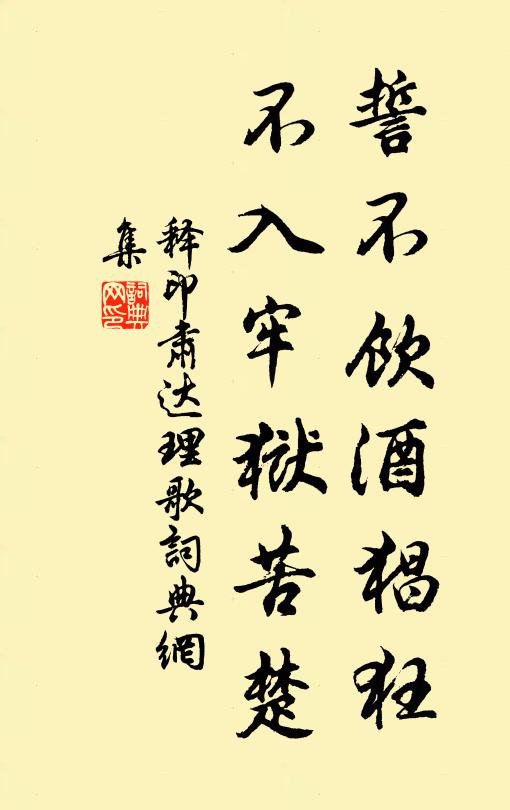 誓不飲酒猖狂
不入牢獄苦楚
释印肃达理歌詞典網
集
詞典
网印